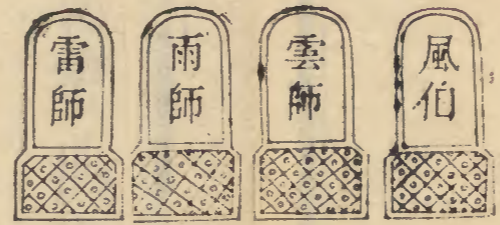 風伯
雲師
雨師
雷師